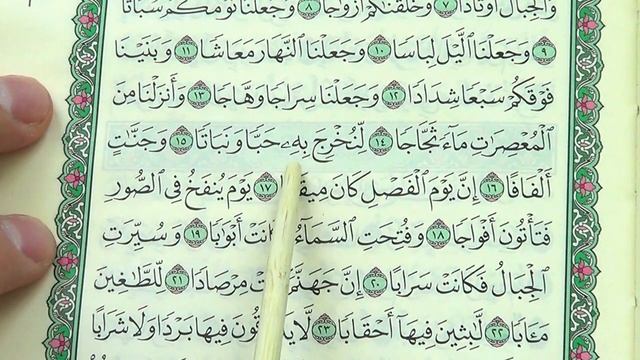 وَالْجِبَالَ أَوْتَادًا ٧ وَخَلَقْنَاكُمْ أَزْوَاجًا ٨ وَجَعَلْنَا نَوْمَكُمْ سُبَاتًا
٩ وَجَعَلْنَا اللَّيْلَ لِبَاسًا ١٠ وَجَعَلْنَا النَّهَارَ مَعَاشًا ١١ وَبَنَيْنَا
فَوْقَكُمْ سَبْعًا شِدَادًا ١٢ وَجَعَلْنَا سِرَاجًا وَهَّاجًا ١٣ وَأَنزَلْنَا مِنَ
الْمُعْصِرَاتِ مَآءً ثَجَّاجًا ١٤ لِّنُخْرِجَ بِهِۦ حَبًّا وَنَبَاتًا ١٥ وَجَنَّٰتٍ
أَلْفَافًا ١٦ إِنَّ يَوْمَ الْفَصْلِ كَانَ ١٧ يَوْمَ يُنفَخُ فِي الصُّورِ
فَتَأْتُونَ أَفْوَاجًا ١٨ وَفُتِحَتِ السَّمَآءُ أَبْوَابًا ١٩ وَسُيِّرَتِ
الْجِبَالُ فَكَانَتْ سَرَابًا ٢٠ إِنَّ مِرْصَادًا ٢١ لِّلطَّٰغِينَ
مَـَٔابًا ٢٢ لَّٰبِثِينَ فِيهَآ أَحْقَابًا ٢٣ فِيهَا بَرْدًا وَلَا شَرَابًا